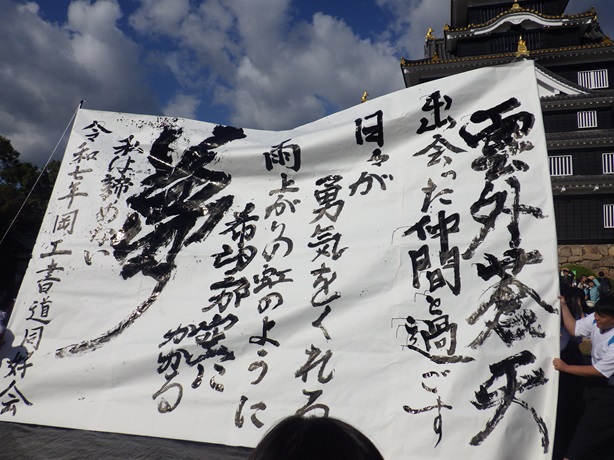 雲外蒼天
出会った仲間と過ごす
日々が
勇気をくれる
雨上がりの虹のように
希望
かかる
夢
私は諦めない
令和七年岡工書道同好会